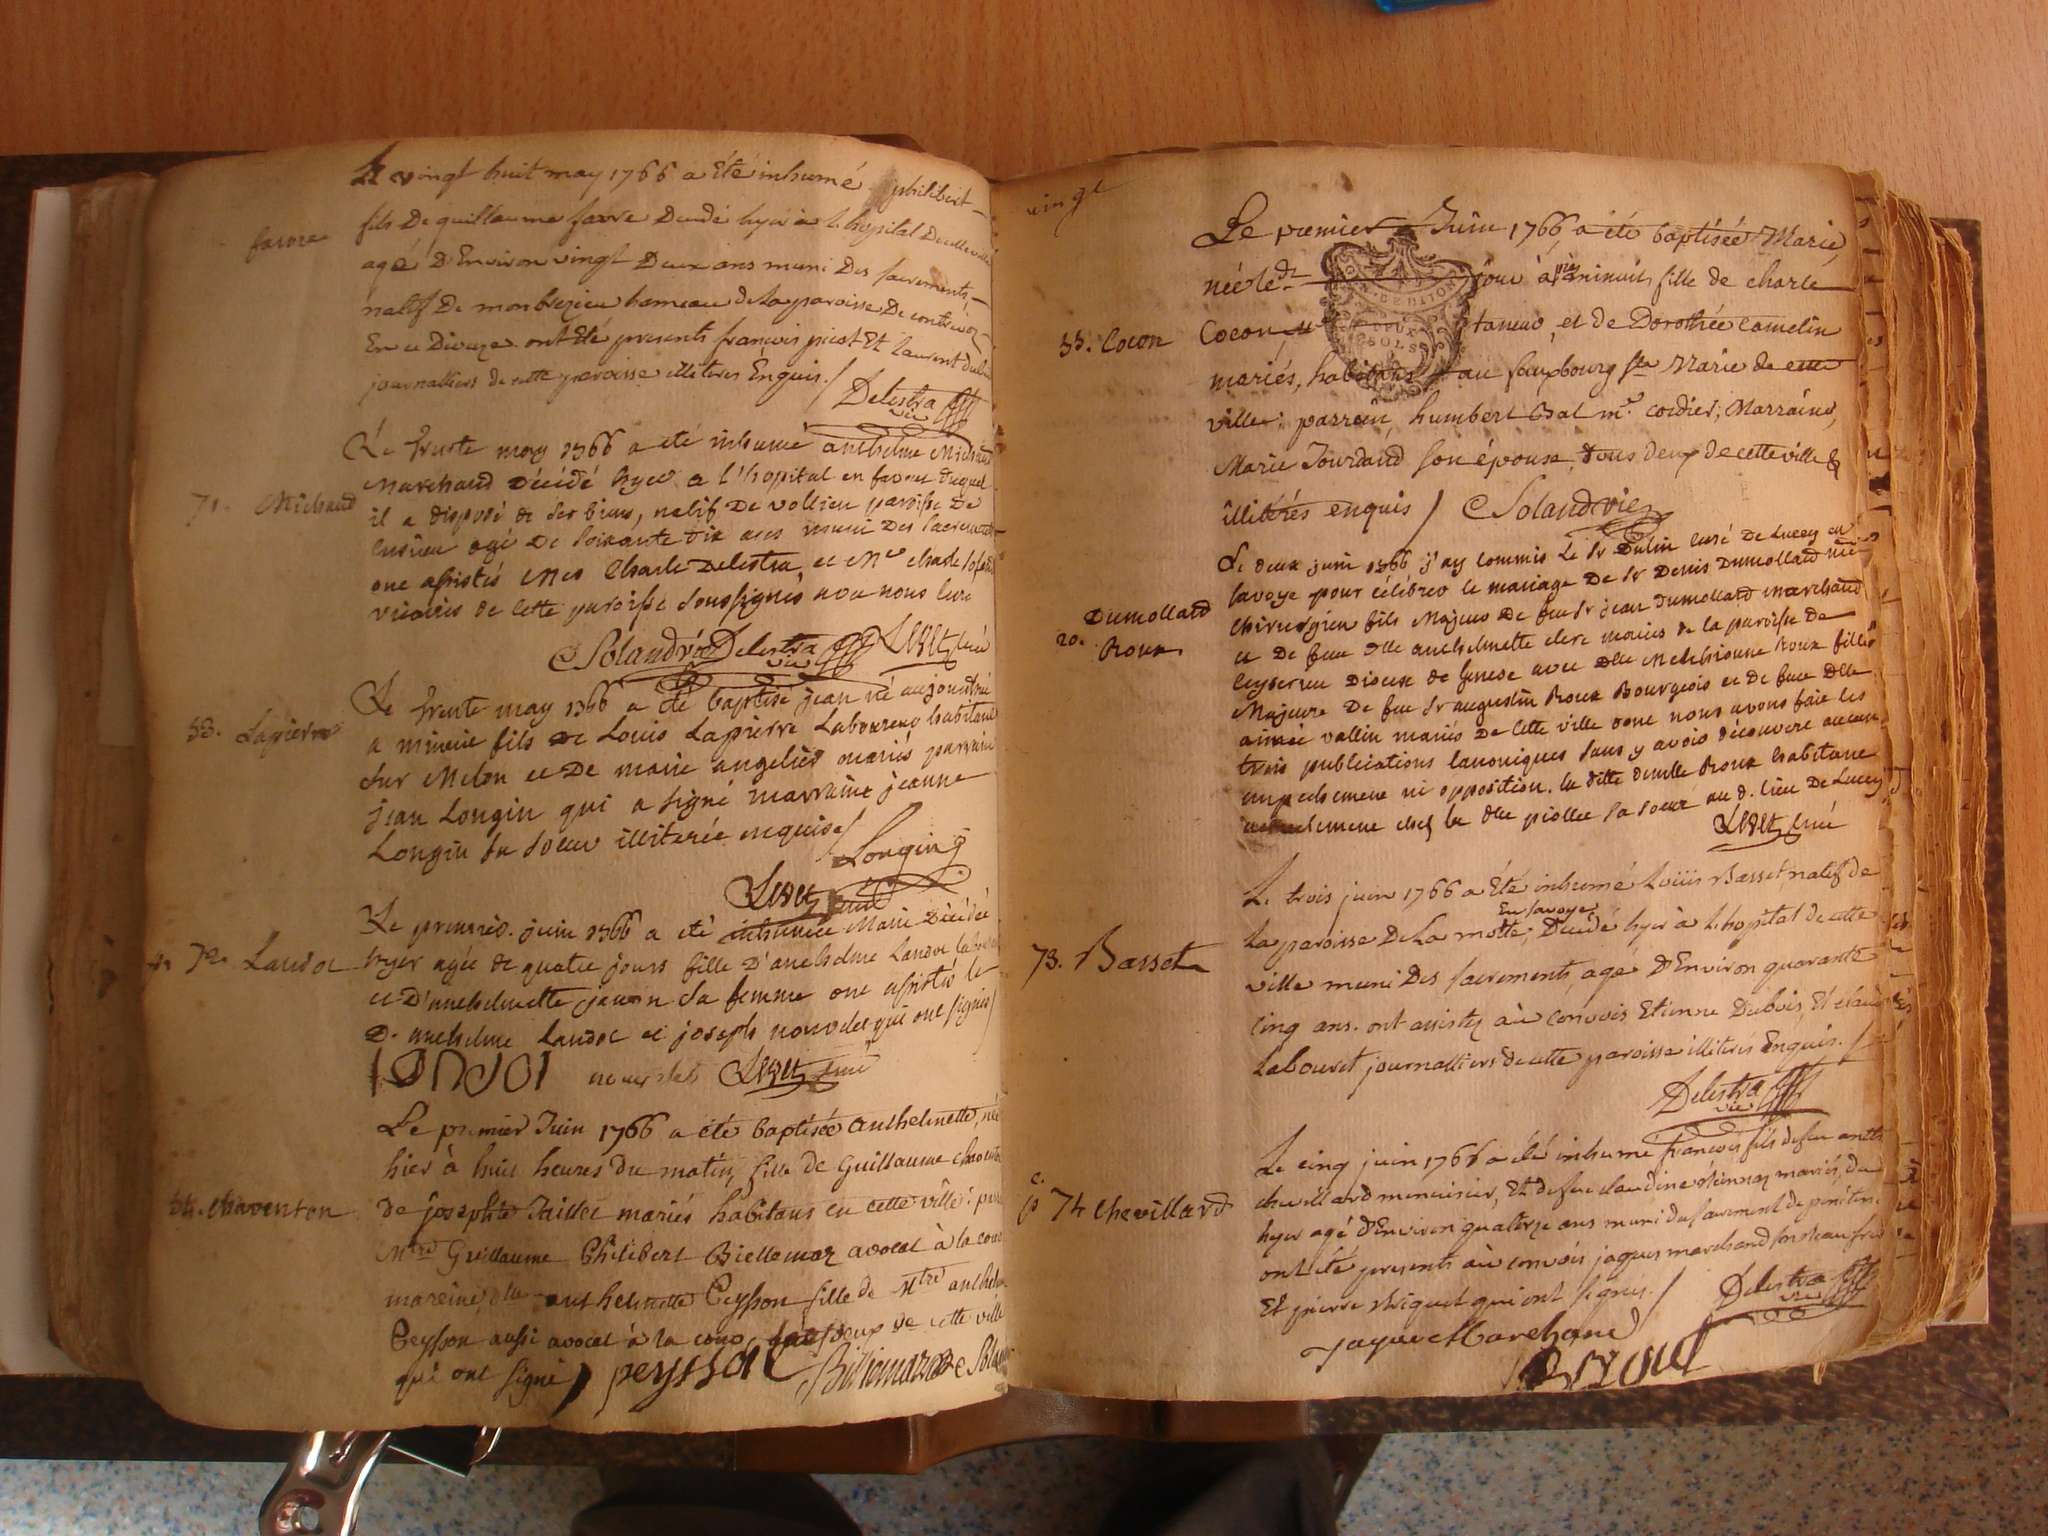 Le vingt huit may 1766 a été inhumé philibert
favre
fils De guillaume favre Decedé hyer à l'hopital De cette ville
agé D'Environ vingt Deux ans muni Des sacrements,
natif De monbrezieu hameau de la paroisse De contrevoz
En ce Dioceze. ont Eté presents francois picot Et laurent
journalliers de cette paroisse illiterés Enquis./
Delestra vic
Le trente may 1766 a eté inhumé anthelme Michaud
71. Michaud
Marchand décédé hyer a l'hopital en faveur duquel
il a disposé de ses biens, natif De vollien paroisse De
agé De soixante dix ans muni Des sacrements
ont assistés Mes Charle Delestra et Mre charle
vicaires de cette paroisse soussignés avec nous curé
Soland vic Delestra vic curé
Le trente may 1766 a eté baptisé jean né aujourdhui
53. Lapierre
a minuit fils de Louis Lapierre Laboureur habitant
sur Melon et De marie angelier mariés parrain
jean Longin qui a signé marraine jeanne
Longin sa soeur illiterée enquise/
Longin
curé
Le premier. juin 1766 a eté inhumée Marie Décédée
72. Landoc
hyer agée de quatre jours fille D'anthelme Landoc
et D'anthelmette sa femme ont assistés le
D. anthelme Landoc et joseph nouvelet qui ont signés/
curé
Le premier Juin 1766 a été baptisée anthelmette, née
hier à huit heures du matin, fille de Guillaume
54. chaventon
de josephte Taillet mariés habitans en cette ville:
Mtre Guillaume Philibert Billiomaz avocat à la cour
mareine, dlle anthelmette Peysson fille de Mtre anthelme
Peysson aussi avocat à la cour, tous deux de cette ville
qui ont signé / peysson Billiomaz
vingt
Le premier Juin 1766, a été baptisée Marie,
née le dt jour à minuit, fille de charle
55. Cocon
Cocon, et de Dorothée camelin
mariés, habitans au fauxbourg ste Marie de cette
ville: parrain, humbert Bal me cordier; Marraine,
Marie Jourdand son épouse, tous deux de cette ville &
illiterés enquis / Soland vic
Le deux juin 1766 j'ay commis Le Sr Dulin curé De Lucey en
savoye pour célébrer le mariage De Sr Denis Dumollard me
Dumollard
chirurgien fils Majeur De feu Sr jean Dumollard marchand
20. Roux
et De feue dlle anthelmette clerc mariés de la paroisse De
Ceyserieu Diocese de Geneve avec dlle Melchionne Roux fille
Majeure De feu Sr augustin Roux Bourgeois et de feue Dlle
aimée vallin mariés De cette ville dont nous avons fait les
trois publications canoniques sans y avoir découvert aucun
empechement ni opposition. la ditte demlle Roux habitant
actuellement chez la dlle piollet sa soeur au d. lieu De Lucey
curé
Le trois juin 1766 a Eté inhumé Loüis Basset, natif de
En savoye
la paroisse De La motte, Décédé hyer à l'hopital de cette
73. Basset
ville muni Des sacrements, agé D'Environ quarante
cinq ans. ont assistez au convois Etienne Dubois, Et claude
Labouret journalliers de cette paroisse illiterés Enquis./
Delestra vic
Le cinq juin 1766 a été inhumé francois fils de feu anth
chevillard menuisier, Et de feue claudine mariés, decedé
74 chevillard
hyer agé D'Environ quatorze ans muni du sacrement de penitence
ont eté presents au convois jaques marchand
Et pierre qui ont signés./ Delestra vic
jaque Marchand